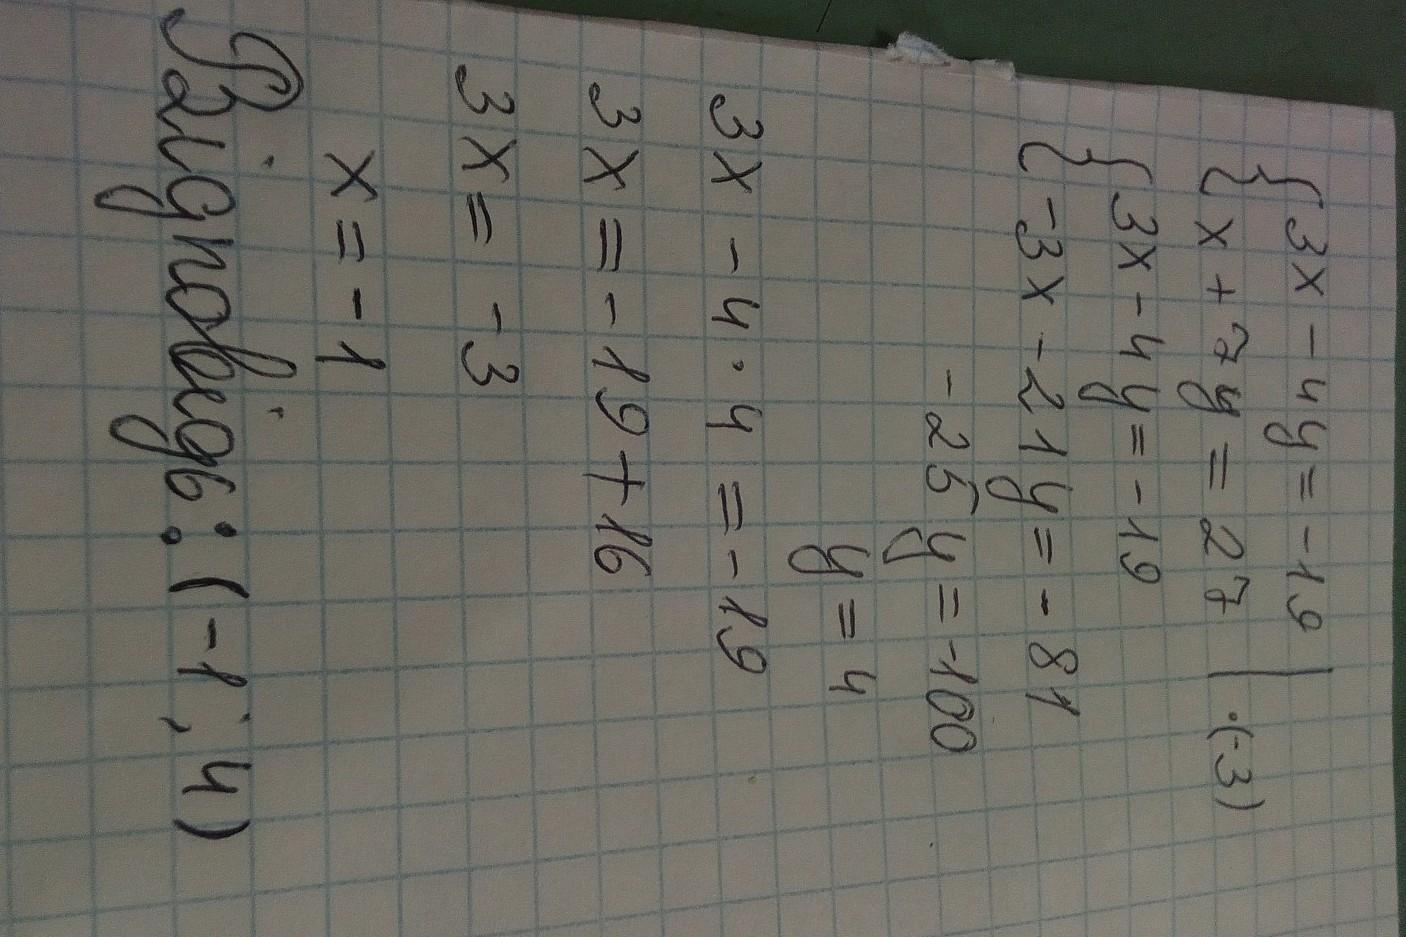 {3x - 4y = -19
{x + 7y = 27 | ·(-3)
{3x - 4y = -19
{-3x - 21y = -81
-25y = -100
y = 4
3x - 4·4 = -19
3x = -19 + 16
3x = -3
x = -1
Відповідь: (-1; 4)